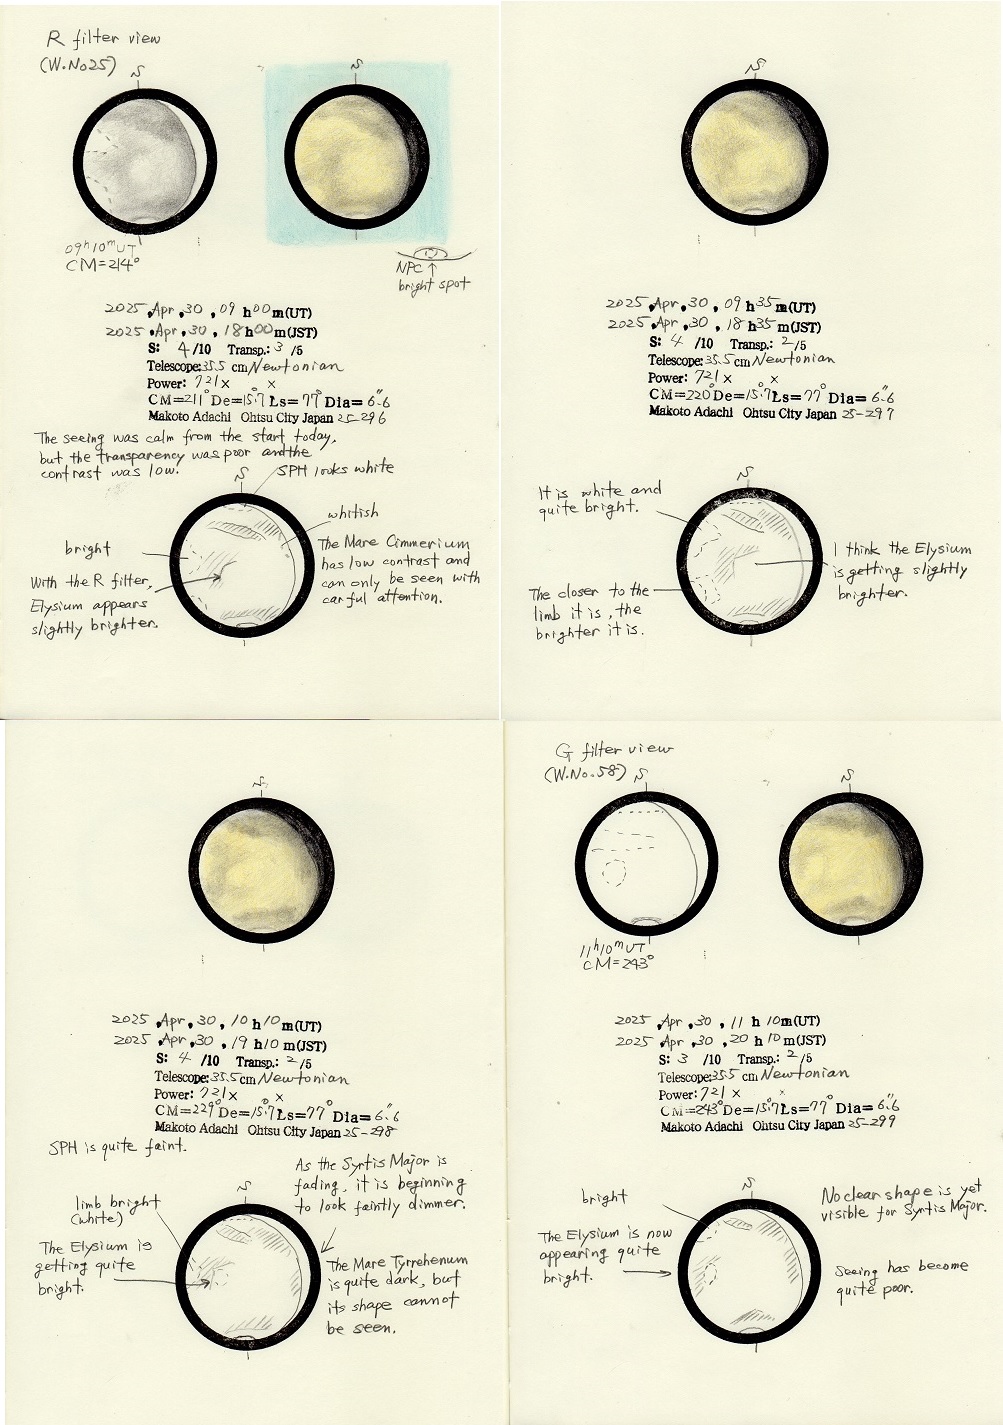 R filter view
(W.No25)
S
S
09h10mUT
CM=214°
NPC ↑
bright spot
2025 Apr. 30, 09 h 00 m(UT)
2025 Apr. 30, 18 h 00 m(JST)
S: 4 /10 Transp.: 3 /5
Telescope: 35.5 cm Newtonian
Power: 721 x x
CM=211° De=15.°7 Ls=77° Dia= 6."6
Makoto Adachi Ohtsu City Japan 25-296
The seeing was calm from the start today,
but the transparency was poor and the
contrast was low.
S
SPH looks white
whitish
bright
With the R filter,
Elysium appears
slightly brighter.
The Mare Cimmerium
has low contrast and
can only be seen with
carful attention.
S
2025 Apr. 30, 09 h 35 m(UT)
2025 Apr. 30, 18 h 35 m(JST)
S: 4 /10 Transp.: 2 /5
Telescope: 35.5 cm Newtonian
Power: 721 x x
CM=220° De=15.°7 Ls=77° Dia= 6."6
Makoto Adachi Ohtsu City Japan 25-297
S
It is white and
quite bright.
The closer to the
limb it is, the
brighter it is.
I think the Elysium
is getting slightly
brighter.
S
2025 Apr. 30, 10 h 10 m(UT)
2025 Apr. 30, 19 h 10 m(JST)
S: 4 /10 Transp.: 2 /5
Telescope: 35.5 cm Newtonian
Power: 721 x x
CM=229° De=15.°7 Ls=77° Dia= 6."6
Makoto Adachi Ohtsu City Japan 25-298
SPH is quite faint.
S
limb bright
(white)
The Elysium is
getting quite
bright.
As the Syrtis Major is
fading, it is beginning
to look faintly dimmer.
The Mare Tyrrehenum
is quite dark, but
its shape cannot
be seen.
G filter view
(W.No.58)
S
S
11h10mUT
CM=243°
2025 Apr. 30, 11 h 10 m(UT)
2025 Apr. 30, 20 h 10 m(JST)
S: 3 /10 Transp.: 2 /5
Telescope: 35.5 cm Newtonian
Power: 721 x x
CM=243° De=15.°7 Ls=77° Dia= 6."6
Makoto Adachi Ohtsu City Japan 25-299
S
bright
The Elysium is now
appearing quite
bright.
No clear shape is yet
visible for Syrtis Major.
Seeing has become
quite poor.